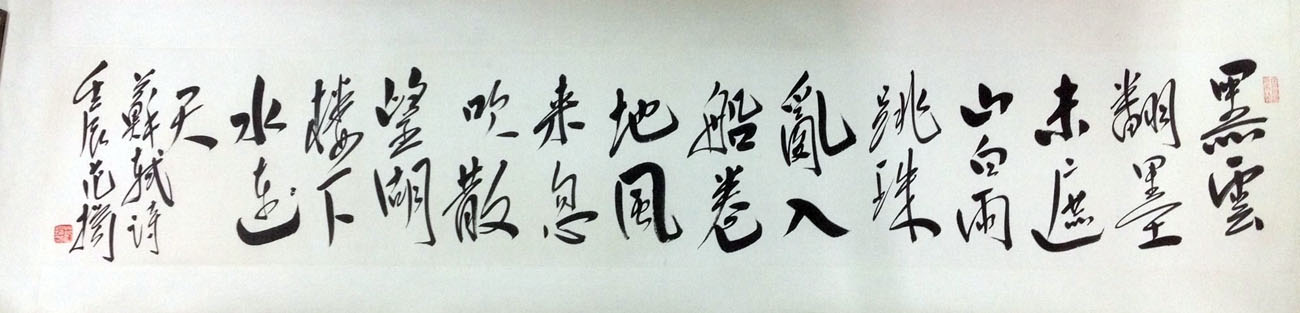 黑雲
翻墨
未遮
山白雨
跳珠
亂入
船卷
地風
来息
吹散
望湖
樓下
水连
天
蘇軾诗
壬辰范揚